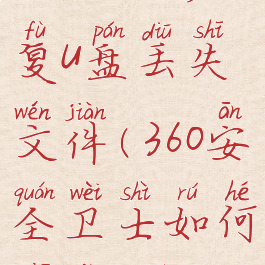 fù pán diū shī
复U盘丢失
wén jiàn ān
文件(360安
quán wèi shì rú hé
全卫士如何